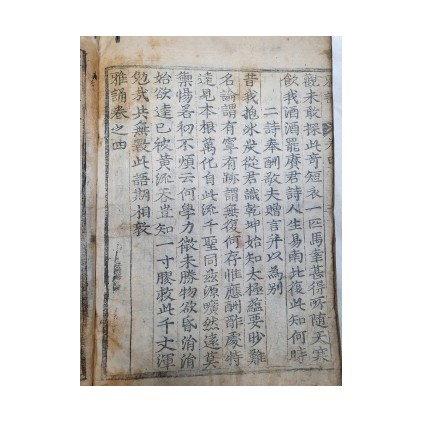 觀未敢探此奇短衣一匹馬幸甚得所隨天寒
飲我酒酒罷賡君詩人生易南北復此知何時
二詩奉酬敬夫贈言并以為別
昔我抱冰炭從君識乾坤始知太極蘊要眇難
名論謂有寧有跡謂無復何存惟應酬酢處特
達見本根萬化自此流千聖同玆源曠然遠莫
禦惕若初不煩云何學力微未勝物欲昏涓涓
始欲達已被黃流呑豈知一寸膠救此千丈渾
勉哉共無斁此語期相敦
雅誦卷之四